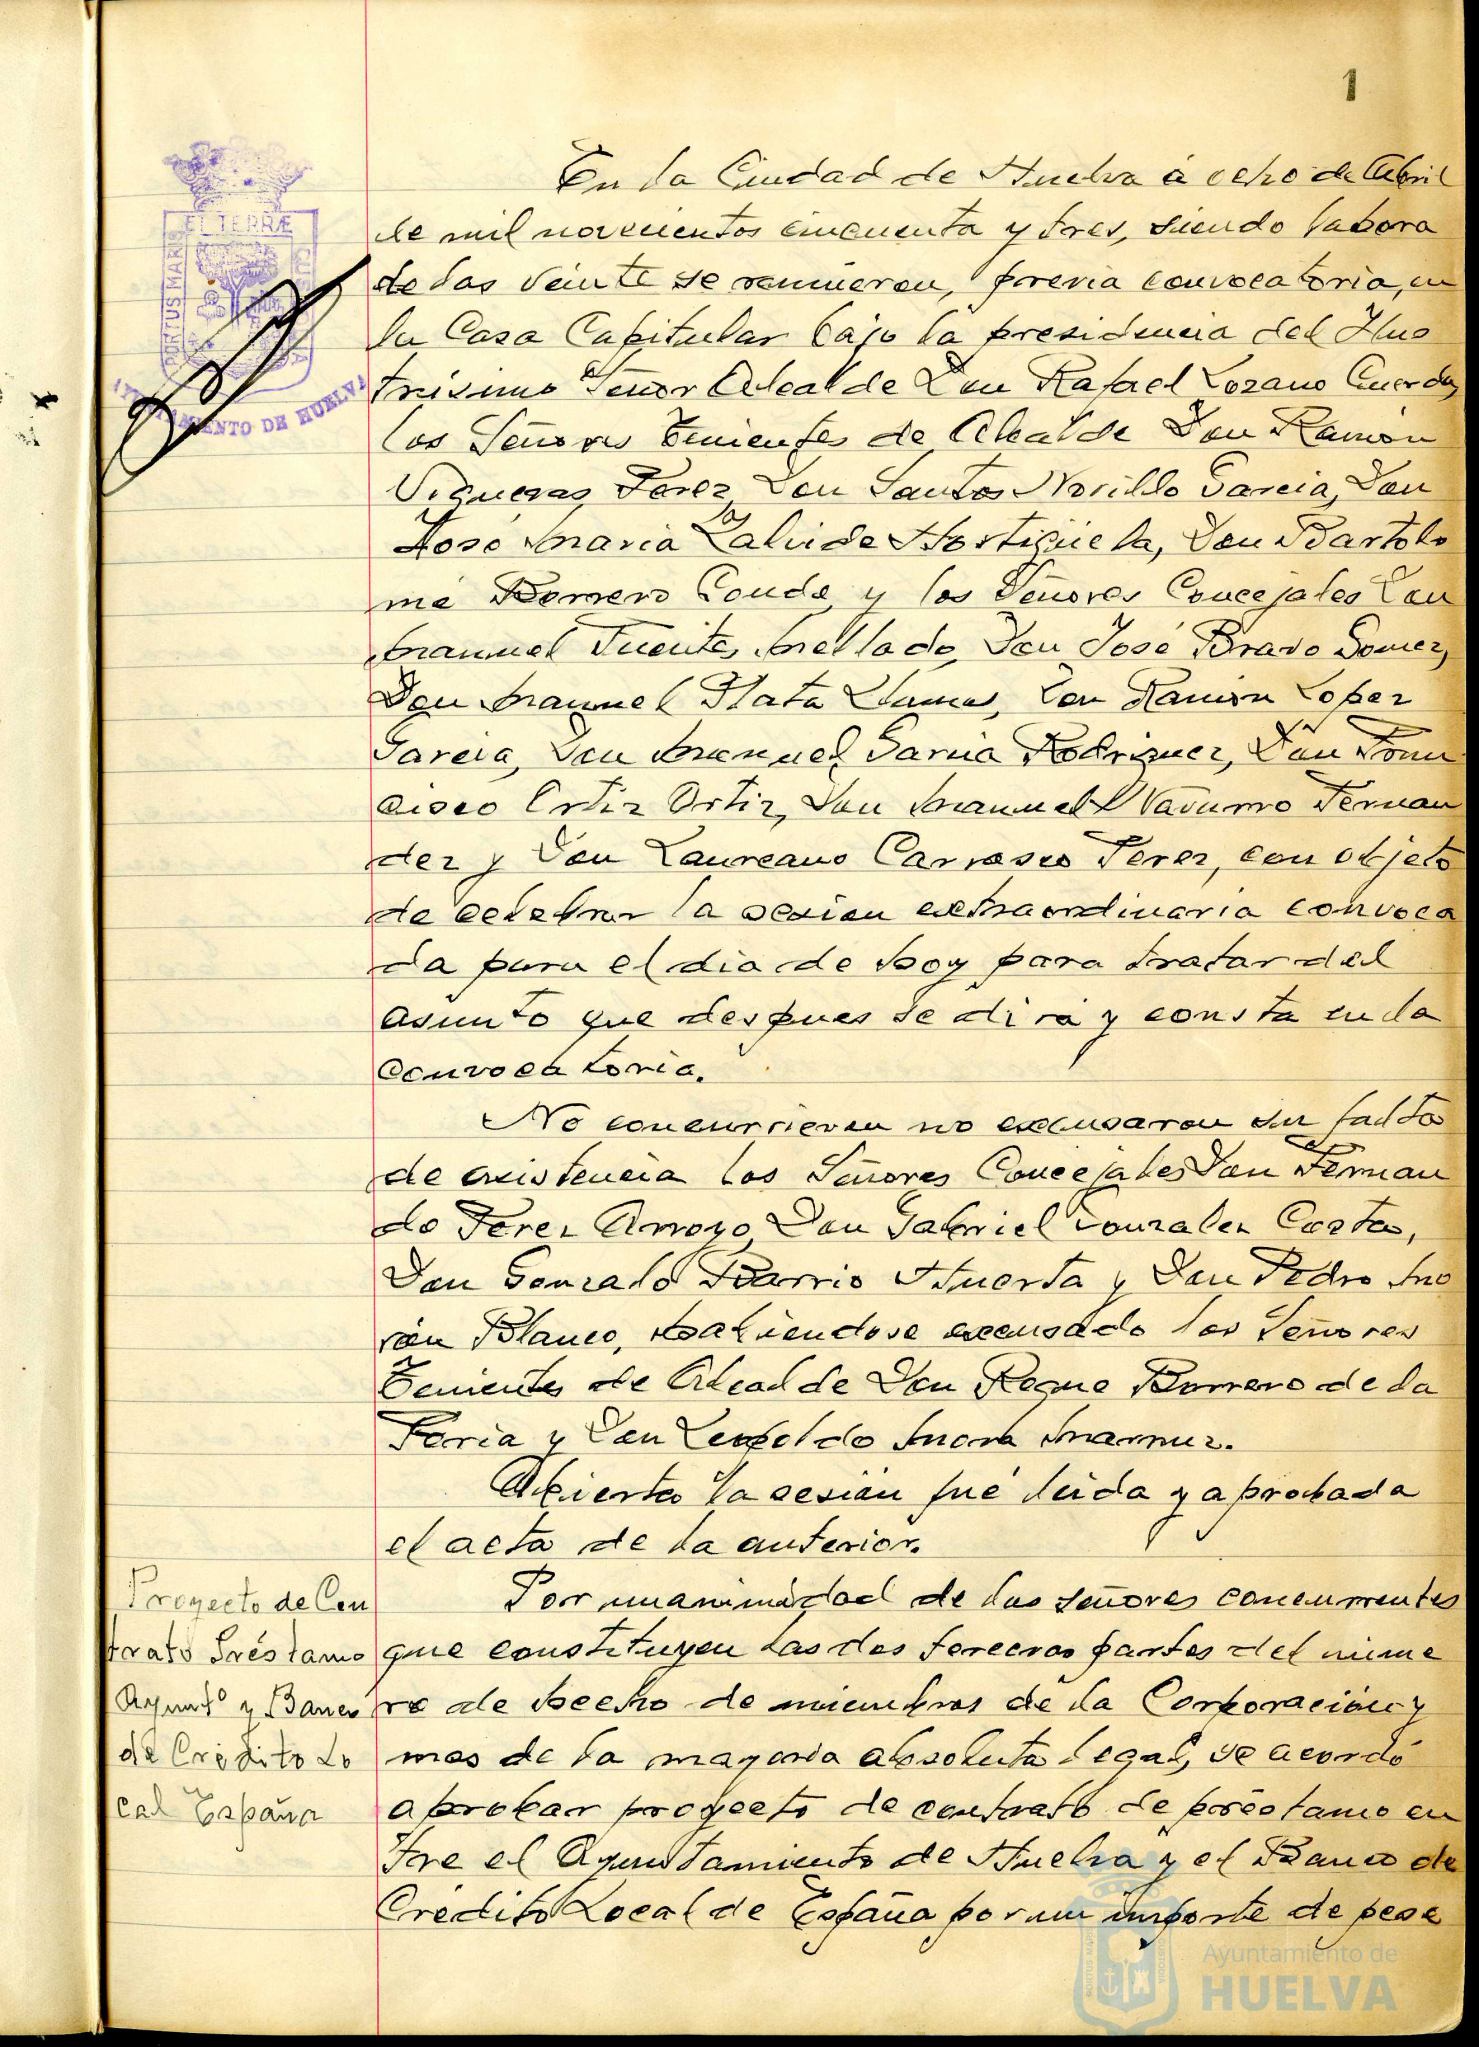 1
En la Ciudad de Huelva á ocho de Abril
de mil novecientos cincuenta y tres, siendo la hora
de las veinte se reunieron, previa convocatoria, en
la Casa Capitular bajo la presidencia del Ilus
trisimo Señor Alcalde Don Rafael Lozano Cuerda,
los Señores Tenientes de Alcalde Don Ramón
Vigueras Perez, Don Santos Norillo Garcia, Don
José Maria Zalvide Hostigüela, Don Bartolo
mé Romero Conde, y los Señores Concejales Don
Manuel Fuentes Mellado, Don José Bravo Gomez,
Don Manuel Plata Llamas, Don Ramón Lopez
Garcia, Don Manuel Garcia Rodriguez, Don Fran
cisco Ortiz Ortiz, Don Manuel Navarro Fernan
dez y Don Laureano Carrasco Perez, con objeto
de celebrar la sesion extraordinaria convoca
da para el dia de hoy para tratar del
asunto que despues se dirá y consta en la
convocatoria.
No concurrieron no excusaron su falta
de asistencia los Señores Concejales Don Fernan
do Perez Arroyo, Don Gabriel Gonzalez Costa,
Don Gonzalo Barrio Huerta y Don Pedro Mo
rón Blanco, habiendose excusado los Señores
Tenientes de Alcalde Don Roque Borrero de la
Feria y Don Leopoldo Mora
Abierta la sesión fué leida y aprobada
el acta de la anterior.
Por unanimidad de los señores concurrentes
que constituyen las dos terceras partes del nume
ro de hecho de miembros de la Corporación y
mas de la mayoria absoluta legal, se acordó
aprobar proyecto de contrato de préstamo en
tre el Ayuntamiento de Huelva y el Banco de
Crédito Local de España por un importe de pese
Proyecto de Con
trato Préstamo
Ayuntº y Banco
de Credito Lo
cal España
PORTUS MARIS ET TERRÆ CUSTODIA
AYUNTAMIENTO DE HUELVA
Ayuntamiento de
HUELVA